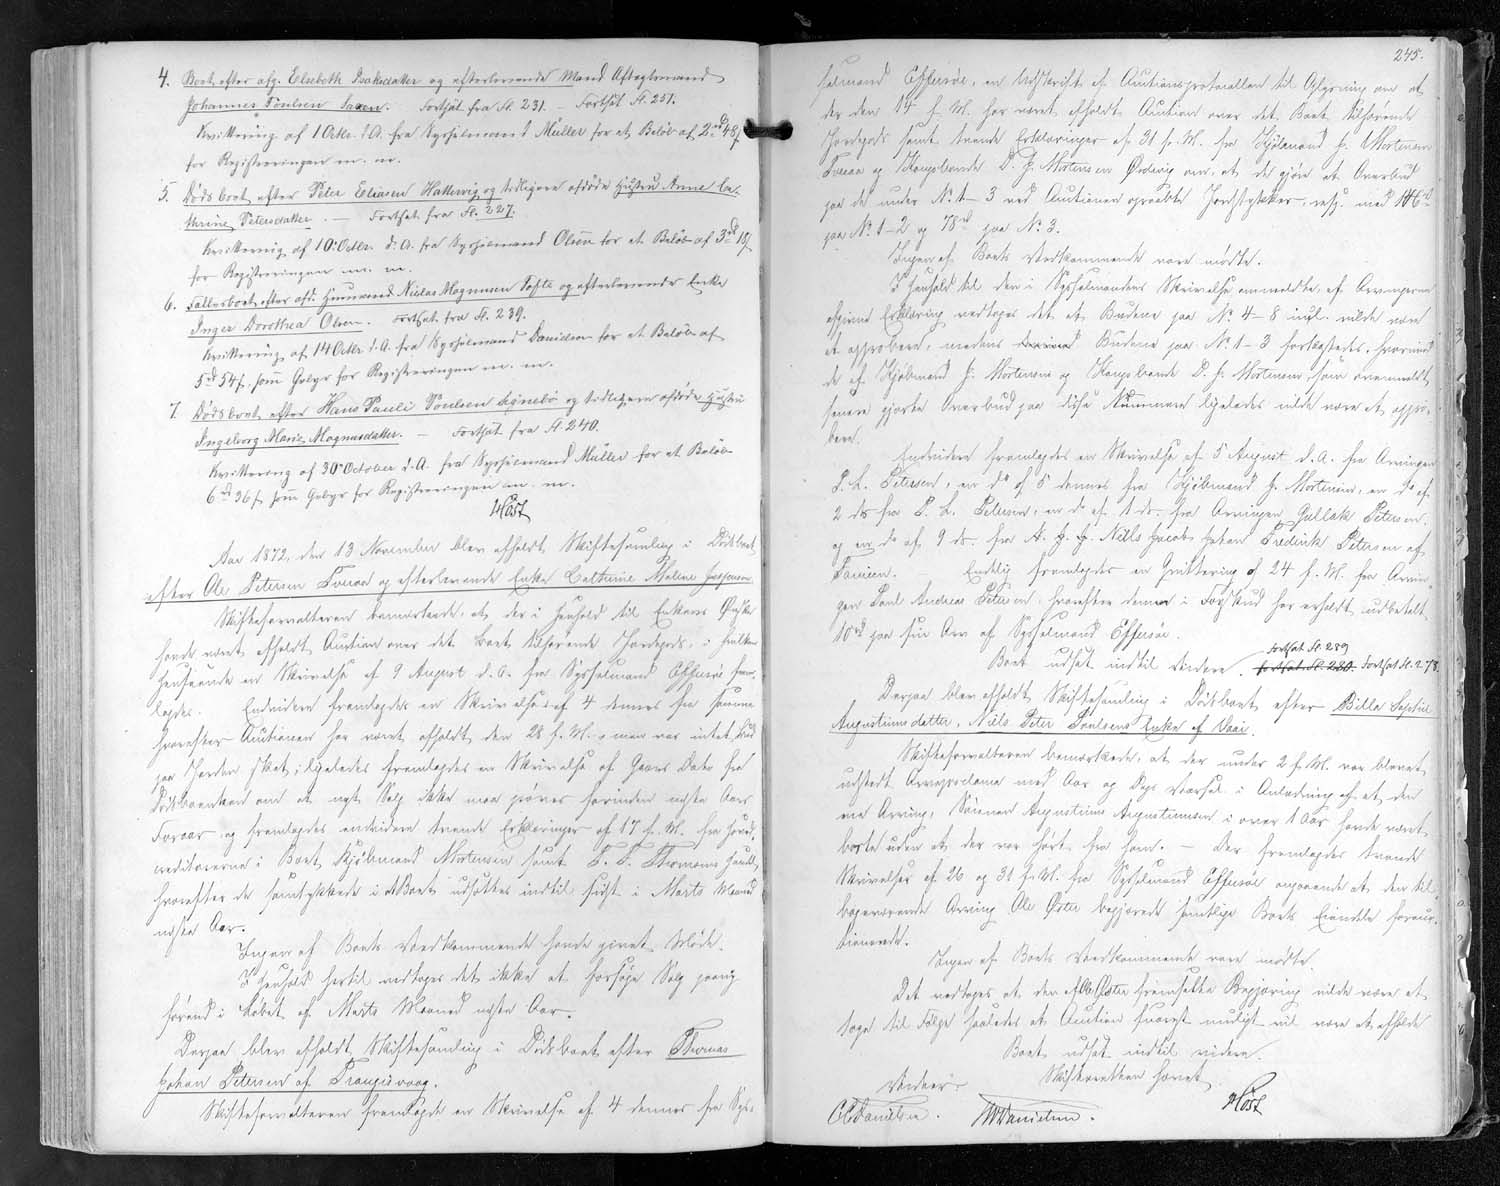 4. Boet efter afg. Elsebeth Isaksdatter og efterlevende Mand Aftægtsmand
Johannes Poulsen Saxen. Fortsat fra Fl. 231. — Fortsat Fl. 251.
Kvittering af 1 Octbr. d. A. fra Sysselmand Müller for et Beløb af 2 rd 48 ſ
for Registreringen m. m.
5. Dødsboet efter Peter Eliasen Hattervig og tidligere afdøde Hustru Anne Ca-
thrine Petersdatter. — Fortsat fra Fl. 227.
Kvittering af 10 Octbr. d. A. fra Sysselmand Olsen for et Beløb af 3 rd 18 ſ
for Registreringen m. m.
6. Fællesboet efter afd. Huusmand Niclas Magnusen Tofte og efterlevende Enke
Inger Dorothea Olsen. Fortsat fra Fl. 239.
Kvittering af 14 Octbr d. A. fra Sysselmand Danielsen for et Beløb af
5 rd 54 ſ. som Gebyr for Registreringen m. m.
7. Dødsboet efter Hans Pauli Poulsen Signebø og tidligere afdøde Hustru
Ingeborg Marie Magnusdatter. — Fortsat fra Fl. 240.
Kvittering af 30 October d. A. fra Sysselmand Müller for et Beløb
6 rd 36 ſ. som Gebyr for Registreringen m. m.
Høst
Aar 1872, den 13 November blev afholdt Skiftesamling i Dødsboet
efter Ole Petersen Foraa og efterlevende Enke Cathrine Malene
Skifteforvalteren bemærkede, at der i Henhold til Enkens Ønske
havde været afholdt Auction over det Boet tilhørende Jordegods, i hvilken
Henseende en Skrivelse af 9 August d. A. fra Sysselmand Effersøe frem-
lagdes. Endvidere fremlagdes en Skrivelse af 4 dennes fra samme
hvorefter Auctionen har været afholdt den 28 f. M., men var intet Bud
paa Jorden skeet; ligeledes fremlagdes en Skrivelse af Dato fra
om at nyt Salg ikke maa prøves forinden næste Aars
Foraar og fremlagdes endvidere tvende Erklæringer af 17 f. M. fra Hoved-
creditorerne i Boet, Kjøbmand Mortensen samt Thomsens Handel,
hvorefter de samtykkede i at Boet udsættes indtil sidst i Marts Maaned
næste Aar.
Ingen af Boets Vedkommende havde givet Møde.
I Henhold hertil vedtoges det ikke at forsøge Salg paany
førend i Løbet af Marts Maaned næste Aar.
Derpaa blev afholdt Skiftesamling i Dødsboet efter Thomas
Johan Petersen af Frangisvaag.
Skifteforvalteren fremlagde en Skrivelse af 4 dennes fra Sys-
245.
selmand Effersøe, en Udskrift af Auctionsprotocollen til Oplysning om at
der den 14 f. M. har været afholdt Auction over det Boet tilhørende
Jordegods samt tvende Erklæringer af 31 f. M. fra Kjøbmand J. Mortensen
Foraa og Kongsbonde D. J. Mortensen Øravig om, at de gjøre et Overbud
paa de under No 1–3 ved Auctionen opraabte Jordstykker, resp. med 146 rd
paa No 1–2 og 78 rd paa No 3.
Ingen af Boets Vedkommende vare mødte.
I Henhold til den i Sysselmandens Skrivelse anmeldte, af Arvingerne
afgivne Erklæring vedtoges det at Budene paa No 4–8 incl. vilde være
at approbere, medens Budene paa No 1–3 forkastedes, hvorimod
de af Kjøbmand J. Mortensen og Kongsbonde D. J. Mortensen, som ovenmeldt,
senere gjorte Overbud paa disse Nummere ligeledes vilde være at appro-
bere.
Endvidere fremlagdes en Skrivelse af 5 August d. A. fra Arvingen
P. L. Petersen, en do af 5 dennes fra Kjøbmand J. Mortensen, en do af
2 ds fra P. L. Petersen, en do af 1 ds. fra Arvingen Gullak Petersen
og en do af 9 ds. fra Niels Jacob Johan Fredrik Petersen af
Famien. — Endelig fremlagdes en Quittering af 24 f. M. fra Arvin-
gen Poul Andreas Petersen, hvorefter denne i Forskud har erholdt udbetalt
10 rd paa sin Arv af Sysselmand Effersøe.
Boet udsat indtil videre. Fortsat Fl. 289
Fortsat Fl. 280. Fortsat Fl. 273.
Derpaa blev afholdt Skiftesamling i Dødsboet efter Billa Sophie
Augustinusdatter, Niels Peter Poulsens Enke af Vaai.
Skifteforvalteren bemærkede, at der under 2 f. M. var blevet
udstedt Arveproclama med Aar og Dags Varsel i Anledning af at den
ene Arving, Sønnen Augustinus Augustinussen i over 1 Aar havde været
borte uden at der var hørt fra ham. — Der fremlagdes tvende
Skrivelser af 26 og 31 f. M. fra Sysselmand Effersøe angaaende at den til-
bageværende Arving Ole Øster begjærede samtlige Boets Eiendele forauc-
tionerede.
Ingen af Boets Vedkommende vare mødte.
Det vedtoges at den af Ole Øster fremsatte Begjæring vilde være at
tage til Følge saaledes at Auction snarest muligt vil være at afholde
Boet udsat indtil videre.
Skifteretten hævet
Høst
Vidner:
Danielsen.
Danielsen.